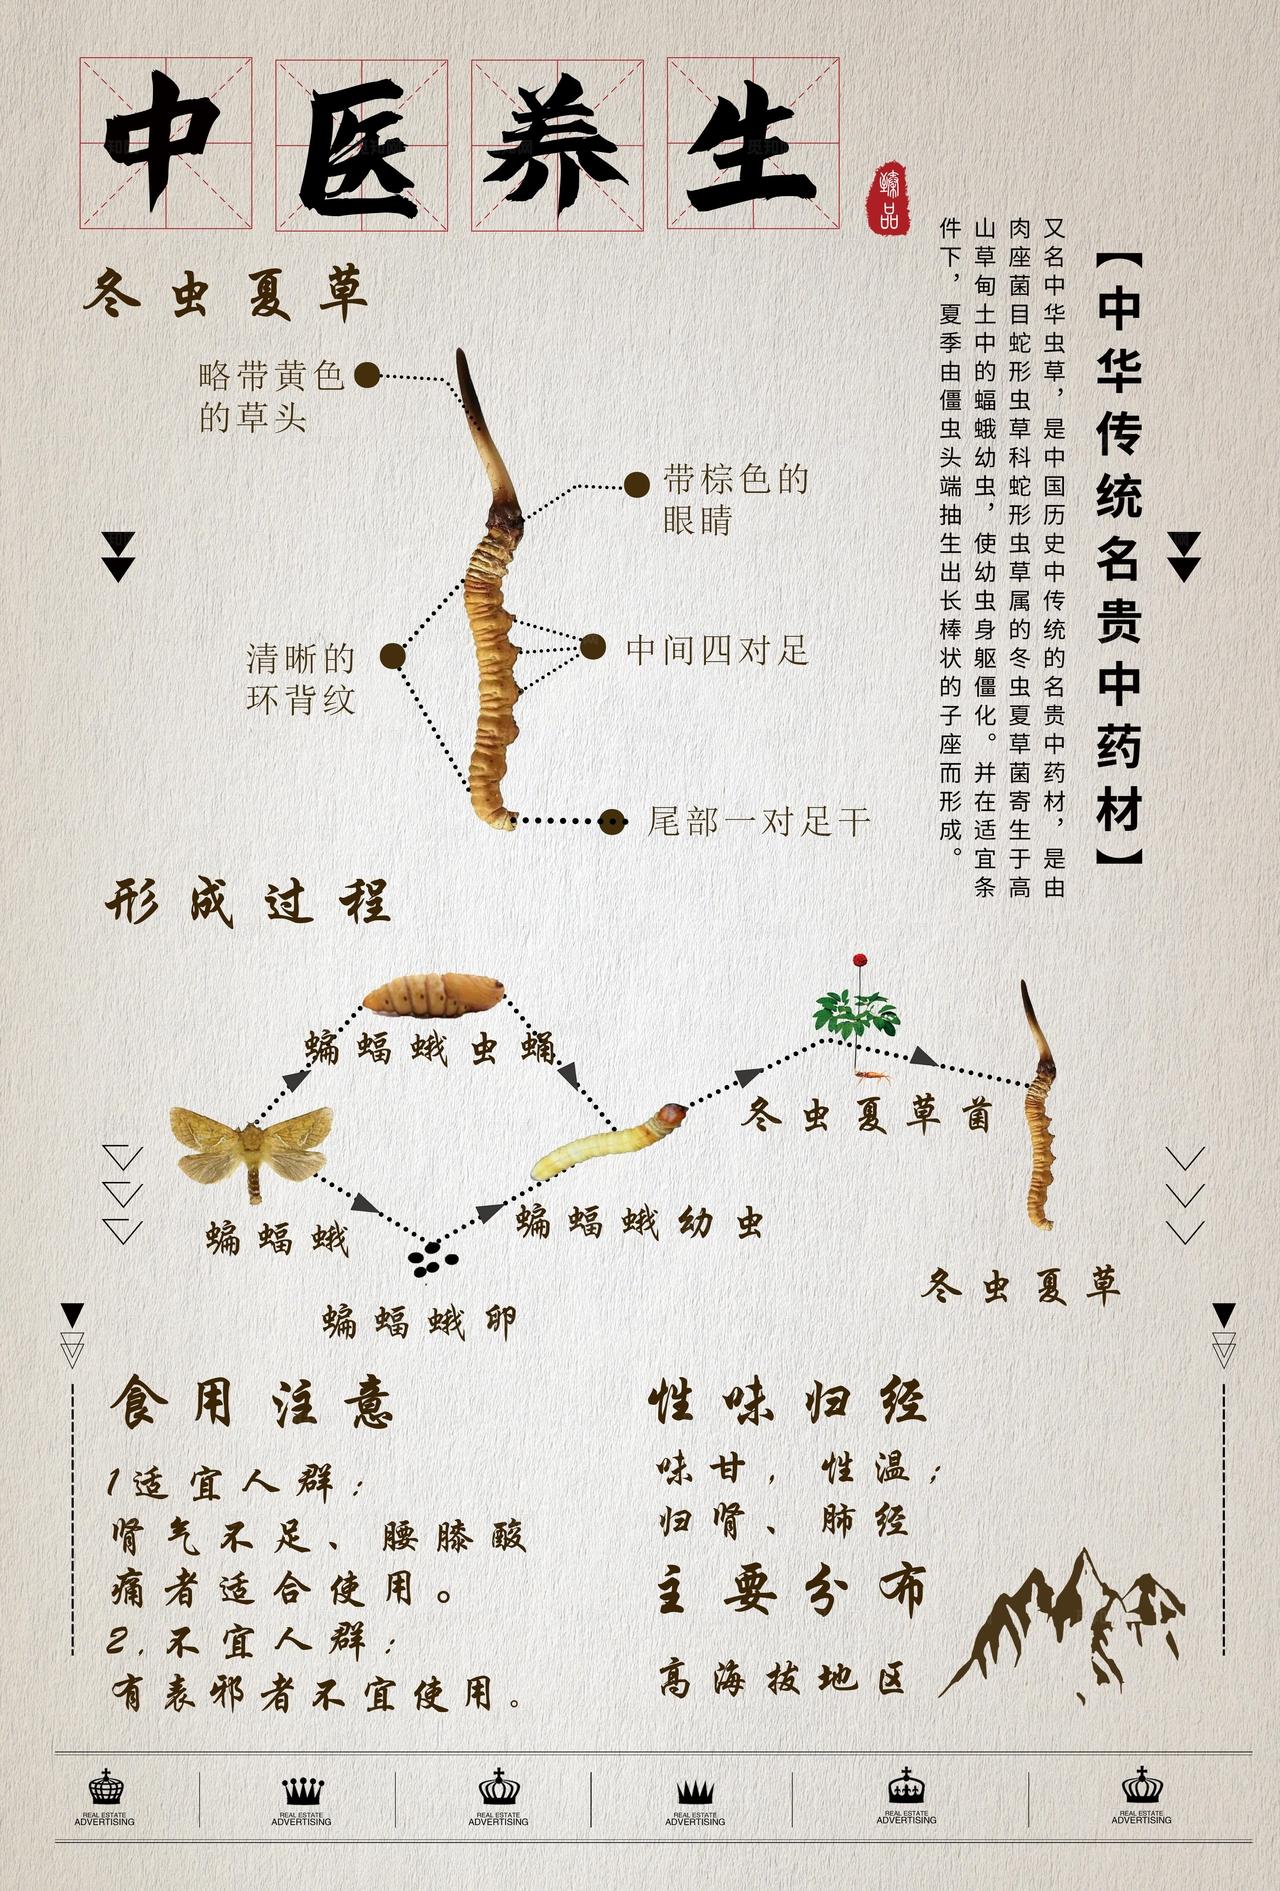 中医养生
臻品
【中华传统名贵中药材】
又名中华虫草，是中国历史中传统的名贵中药材，是由
肉座菌目蛇形虫草科蛇形虫草属的冬虫夏草菌寄生于高
山草甸土中的蝠蛾幼虫，使幼虫身躯僵化。并在适宜条
件下，夏季由僵虫头端抽生出长棒状的子座而形成。
冬虫夏草
略带黄色
的草头
带棕色的
眼睛
清晰的
环背纹
中间四对足
尾部一对足干
形成过程
蝙蝠蛾虫蛹
冬虫夏草菌
蝙蝠蛾
蝙蝠蛾幼虫
冬虫夏草
蝙蝠蛾卵
食用注意
1适宜人群：
肾气不足、腰膝酸
痛者适合使用。
2.不宜人群：
有表邪者不宜使用。
性味归经
味甘，性温；
归肾、肺经
主要分布
高海拔地区
REAL ESTATE
ADVERTISING
REAL ESTATE
ADVERTISING
REAL ESTATE
ADVERTISING
REAL ESTATE
ADVERTISING
REAL ESTATE
ADVERTISING
REAL ESTATE
ADVERTISING